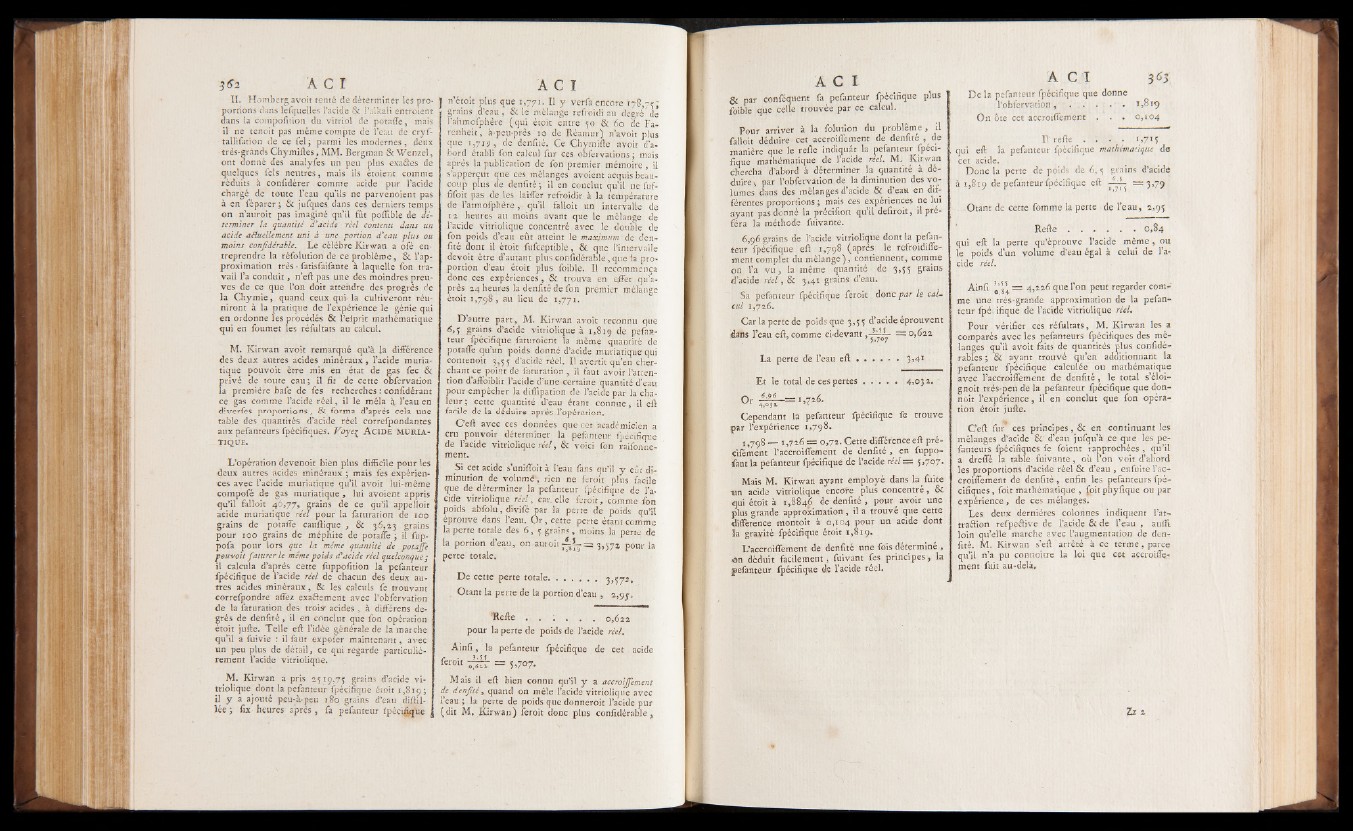 362 A C I
II. Homberg avoit tenté de déterminer les pro-
portions dans lesquelles l'acide & l'alkali entroient
dans la composition du vitriol de potasse, mais
il ne tenoit pas même compte de l'eau de crys-
tallisation de ce sel; parmi les modernes, deux
très-grands Chymistes, MM. Bergman & Wenzel,
ont donné des analyses un peu plus exactes de
quelques sels neutres, mais ils étoient comme
réduits à considérer comme acide pur l'acide
chargé de toute l'eau qu'ils ne parvenoient pas
à en séparer; & jusques dans ces derniers temps
on n'auroit pas imaginé qu'il fût possible de dé-
terminer la quantité d'acide réel contenu dans un
acide actuellement uni à une portion d'eau plus ou
moins considérable. Le célèbre Kirwan a osé en-
treprendre la résolution de ce problême, & l'ap-
proximation très-satisfaisante à laquelle son tra-
vail l'a conduit, n'est pas une des moindres preu-
ves de ce que l'on doit attendre des progrès de
la Chymie, quand ceux qui la cultiveront réu-
niront à la pratique de l'expérience le génie qui
en ordonne les procédés & l'esprit mathématique
qui en soumet les résultats au calcul.
M. Kirwan avoit remarqué qu'à la différence
des deux autres acides minéraux, l'acide muria-
tique pouvoit être mis en état de gas sec &
privé de toute eau; il fit de cette observation
la première base de ses recherches: considérant
ce gas comme l'acide réel, il le mêla à l'eau en
diverses proportions, & forma d'après cela une
table des quantités d'acide réel correspondantes
aux pesanteurs spécifiques. Voyez ACIDE MURIA-
TIQUE.
L'opération devenoit bien plus difficile pour les
deux autres acides minéraux; mais ses expérien-
ces avec l'acide muriatique qu'il avoit lui-même
composé de gas muriatique, lui avoient appris
qu'il falloit 46,77, grains de ce qu'il appelloit
acide muriatique réel pour la saturation de 100
grains de potasse caustique, & 36,23 grains
pour 100 grains de méphite de potasse; il sup-
posa pour lors que la même quantité de potasse
pouvoit saturer le même poids d'acide réel quelconque;
il calcula d'après cette supposition la pesanteur
spécifique de l'acide réel de chacun des deux au-
tres acides minéraux, & les calculs se trouvant
correspondre assez exactement avec l'observation
de la saturation des trois acides, à différens de-
grés de densité, il en conclut que son opération
étoit juste. Telle est l'idée générale de la marche
qu'il a suivie: il faut exposer maintenant, avec
un peu plus de détail, ce qui regarde particuliè-
rement l'acide vitriolique.
M. Kirwan a pris 2519,75 grains d'acide vi-
triolique dont la pesanteur spécifique étoit 1,819;
il y a ajouté peu-à-peu 180 grains d'eau distil-
lée; six heures après, sa pesanteur spécifique
A C I
n'étoit plus que 1,771. Il y versa encore 178,75,
grains d'eau, & le mélange refroidi au degré de
l'athmosphère (qui étoit entre 50 & 60 de Fa-
renheit, à-peu-près 10 de Réamur) n'avoit plus
que 1,719, de densité. Ce Chymiste avoit d'a-
bord établi son calcul sur ces observations; mais
après la publication de son premier mémoire, il
s'apperçut que ces mélanges avoient acquis beau-
coup plus de densité; il en conclut qu'il ne suf-
fisoit pas de les laisser refroidir à la température
de l'atmosphère, qu'il falloit un intervalle de
12 heures au moins avant que le mélange de
l'acide vitriolique concentré avec le double de
son poids d'eau eût atteint le maximum de den-
sité dont il étoit susceptible, & que l'intervalle
devoit être d'autant plus considérable, que la pro-
portion d'eau étoit plus foible. Il recommença
donc ces expériences, & trouva en effet qu'a-
près 24 heures la densité de son premier mélange
étoit 1,798, au lieu de 1,771.
D'autre part, M. Kirwan avoit reconnu que
6,5 grains d'acide vitriolique à 1,819 de pesan-
teur spécifique saturoient la même quantité de
potasse qu'un poids donné d'acide muriatique qui
contenoit 3,55 d'acide réel. Il avertit qu'en cher-
chant ce point de saturation, il faut avoir l'atten-
tion d'affoiblir l'acide d'une certaine quantité d'eau
pour empêcher la dissipation de l'acide par la cha-
leur; cette quantité d'eau étant connue, il est
facile de la déduire après l'opération.
C'est avec ces données que cet académicien a
cru pouvoir déterminer la pesanteur spécifique
de l'acide vitriolique réel, & voici son raisonne-
ment.
Si cet acide s'unissoit à l'eau sans qu'il y eût di-
minution de volume, rien ne seroit plus facile
que de déterminer la pesanteur spécifique de l'a-
cide vitriolique réel, car elle seroit, comme son
poids absolu, divisé par la perte de poids qu'il
éprouve dans l'eau. Or, cette perte étant comme
la perte totale des 6,5 grains, moins la perte de
la portion d'eau, on auroit 6,5/1,819 = 3,572 pour la
perte totale.
De cette perte totale. . . . . . . 3,572.
Otant la perte de la portion d'eau, 2,95.
Reste . . . . . . 0,622
pour la perte de poids de l'acide réel.
Ainsi, la pesanteur spécifique de cet acide
seroit 3,55/0,622 = 5,707.
Mais il est bien connu qu'il y a accroissement
de densité, quand on mêle l'acide vitriolique avec
l'eau; la perte de poids que donneroit l'acide pur
(dit M. Kirwan) seroit donc plus considérable,
A C I
& par conséquent sa pesanteur spécifique plus
foible que celle trouvée par ce calcul.
Pour arriver à la solution du problême, il
falloit déduire cet accroissement de densité, de
manière que le reste indiquât la pesanteur spéci-
fique mathématique de l'acide réel. M. Kirwan
chercha d'abord à déterminer la quantité à dé-
duire, par l'observation de la diminution des vo-
lumes dans des mélanges d'acide & d'eau en dif-
férentes proportions; mais ces expériences ne lui
ayant pas donné la précision qu'il desiroit, il pré-
féra la méthode suivante.
6,96 grains de l'acide vitriolique dont la pesan-
teur spécifique est 1,798 (après le refroidisse-
ment complet du mélange), contiennent, comme
on l'a vu, la même quantité de 3,55 grains
d'acide réel, & 3,41 grains d'eau.
Sa pesanteur spécifique seroit donc par le cal-
cul 1,726.
Car la perte de poids que 3,55 d'acide éprouvent
dans l'eau est, comme ci-devant, 3,55/5,707 = 0,622
La perte de l'eau est . . . . . . 3,41
Et le total de ces pertes . . . . . 4,032.
Or 6,96/4,032 = 1,726.
Cependant la pesanteur spécifique se trouve
par l'expérience 1,798.
1,798 — 1,726 = 0,72. Cette différence est pré-
cisément l'accroissement de densité, en suppo-
sant la pesanteur spécifique de l'acide réel = 5,707.
Mais M. Kirwan ayant employé dans la suite
un acide vitriolique encore plus concentré, &
qui étoit à 1,8846 de densité, pour avoir une
plus grande approximation, il a trouvé que cette
différence montoit à 0,104 pour un acide dont
la gravité spécifique étoit 1,819.
L'accroissement de densité une fois déterminé,
on déduit facilement, suivant ses principes, la
pesanteur spécifique de l'acide réel.
A C I 363
De la pesanteur spécifique que donne
l'observation, . . . . . . 1,819
On ôte cet accroissement . . . 0,104
Il reste . . . . 1,715
qui est la pesanteur spécifique mathématique de
cet acide.
Donc la perte de poids de 6,5 grains d'acide
à 1,819 de pesanteur spécifique est 6,5/1,715 = 3,79
Otant de cette somme la perte de l'eau, 2,95
Reste . . . . . . 0,84
qui est la perte qu'éprouve l'acide même, ou
le poids d'un volume d'eau égal à celui de l'a-
cide réel.
Ainsi 3,55/0,84 = 4,226 que l'on peut regarder com-
me une très-grande approximation de la pesan-
teur spécifique de l'acide vitriolique réel.
Pour vérifier ces résultats, M. Kirwan les a
comparés avec les pesanteurs spécifiques des mé-
langes qu'il avoit faits de quantités plus considé-
rables; & ayant trouvé qu'en additionnant la
pesanteur spécifique calculée ou mathématique
avec l'accroissement de densité, le total s'éloi-
gnoit très-peu de la pesanteur spécifique que don-
noit l'expérience, il en conclut que son opéra-
tion étoit juste.
C'est sur ces principes, & en continuant les
mélanges d'acide & d'eau jusqu'à ce que les pe-
santeurs spécifiques se soient rapprochées, qu'il
a dressé la table suivante, où l'on voit d'abord
les proportions d'acide réel & d'eau, ensuite l'ac-
croissement de densité, enfin les pesanteurs spé-
cifiques, soit mathématique, soit physique ou par
expérience, de ces mélanges.
Les deux dernières colonnes indiquent l'at-
traction respective de l'acide & de l'eau, aussi
loin qu'elle marche avec l'augmentation de den-
sité. M. Kirwan s'est arrêté à ce terme, parce
qu'il n'a pu connoître la loi que cet accroisse-
ment suit au-delà.
Zz 2